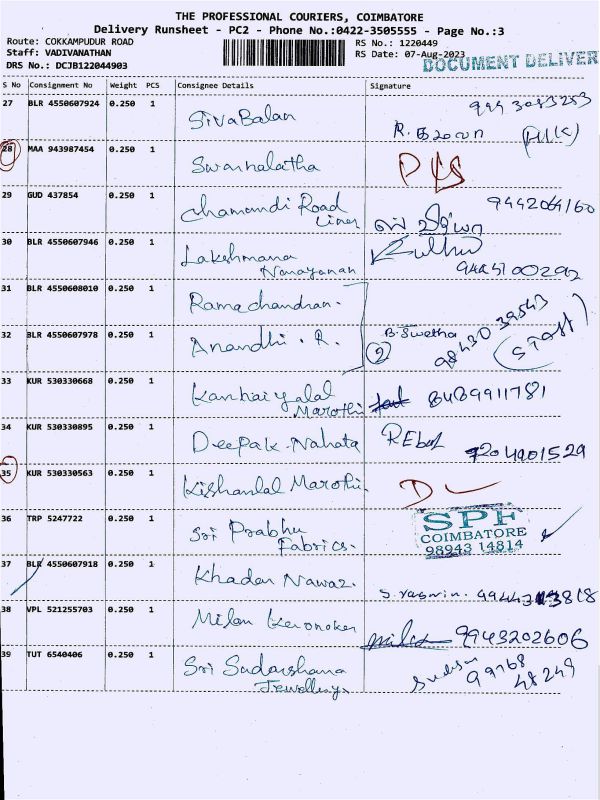 THE PROFESSIONAL COURIERS, COIMBATORE
Delivery Runsheet - PC2 - Phone No.:0422-3505555 - Page No.:3
Route: COKKAMPUDUR ROAD
RS No.: 1220449
Staff: VADIVANATHAN
RS Date: 07-Aug-2023
DOCUMENT DELIVER
DRS No.: DCJB122044903
S No Consignment No Weight PCS Consignee Details Signature
27 BLR 4550607924 0.250 1 SivaBalan
28 MAA 943987454 0.250 1 Swarnalatha
29 GUD 437854 0.250 1 Chamundi Road Lines 9442064160
30 BLR 4550607946 0.250 1 Lakshmana Narayanan
31 BLR 4550608010 0.250 1 Ramachandran.
32 BLR 4550607978 0.250 1 Anandhi . R. B. Swetha 98430 39543
2 (Staff)
33 KUR 530330668 0.250 1 Kanhaiyalal Marothi
34 KUR 530330895 0.250 1 Deepak. Nahata 7204901529
35 KUR 530330563 0.250 1 Kishanlal Marothi.
36 TRP 5247722 0.250 1 Sri Prabhu Fabrics.
SPF
COIMBATORE
98943 14814
37 BLR 4550607918 0.250 1 Khadar Nawaz. S. Yasmin.
38 VPL 521255703 0.250 1 Milan 9943202606
39 TUT 6540406 0.250 1 Sri Sudarshana Jewellerys 99768 48249